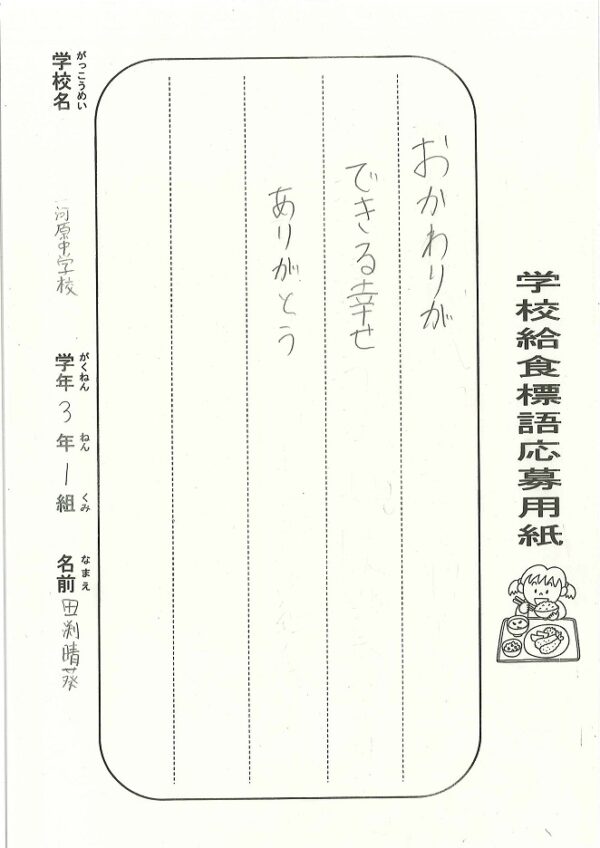 学校給食標語応募用紙
おかわりが
できる幸せ
ありがとう
がっこうめい
学校名
河原中学校
がくねん ねん くみ
学年 3 年 1 組
なまえ
名前 田渕晴葵